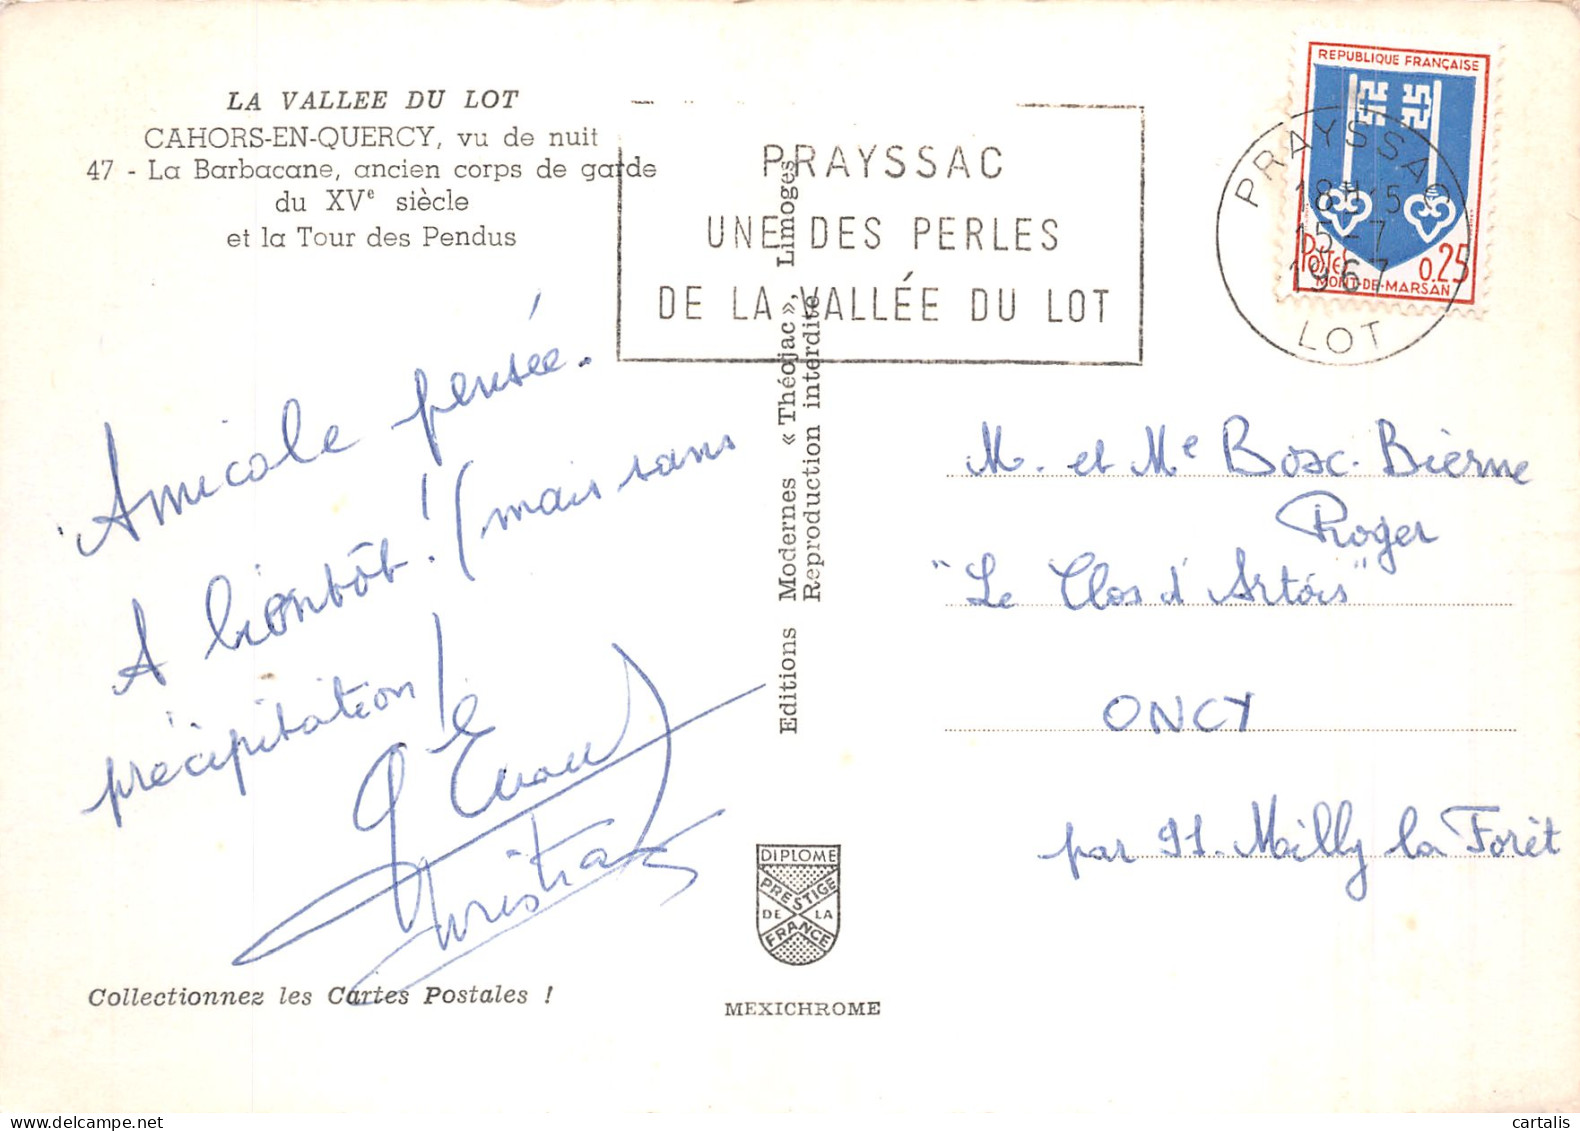 LA VALLEE DU LOT
CAHORS-EN-QUERCY, vu de nuit
47 - La Barbacane, ancien corps de garde
du XVe siècle
et la Tour des Pendus
PRAYSSAC
UNE DES PERLES
DE LA VALLÉE DU LOT
REPUBLIQUE FRANÇAISE
POSTES 0,25
MONT-DE-MARSAN
PRAYSSAC
18H15
15-7
1967
LOT
Amicale pensée.
A bientôt! (mais sans
précipitation!
Christian
Editions Modernes « Théojac », Limoges
Reproduction interdite
M. et Me Bosc-Bierne
Roger
"Le Clos d'Artois"
ONCY
par 91. Milly la Forêt
DIPLOME
PRESTIGE
DE LA
FRANCE
Collectionnez les Cartes Postales !
MEXICHROME
cartalis